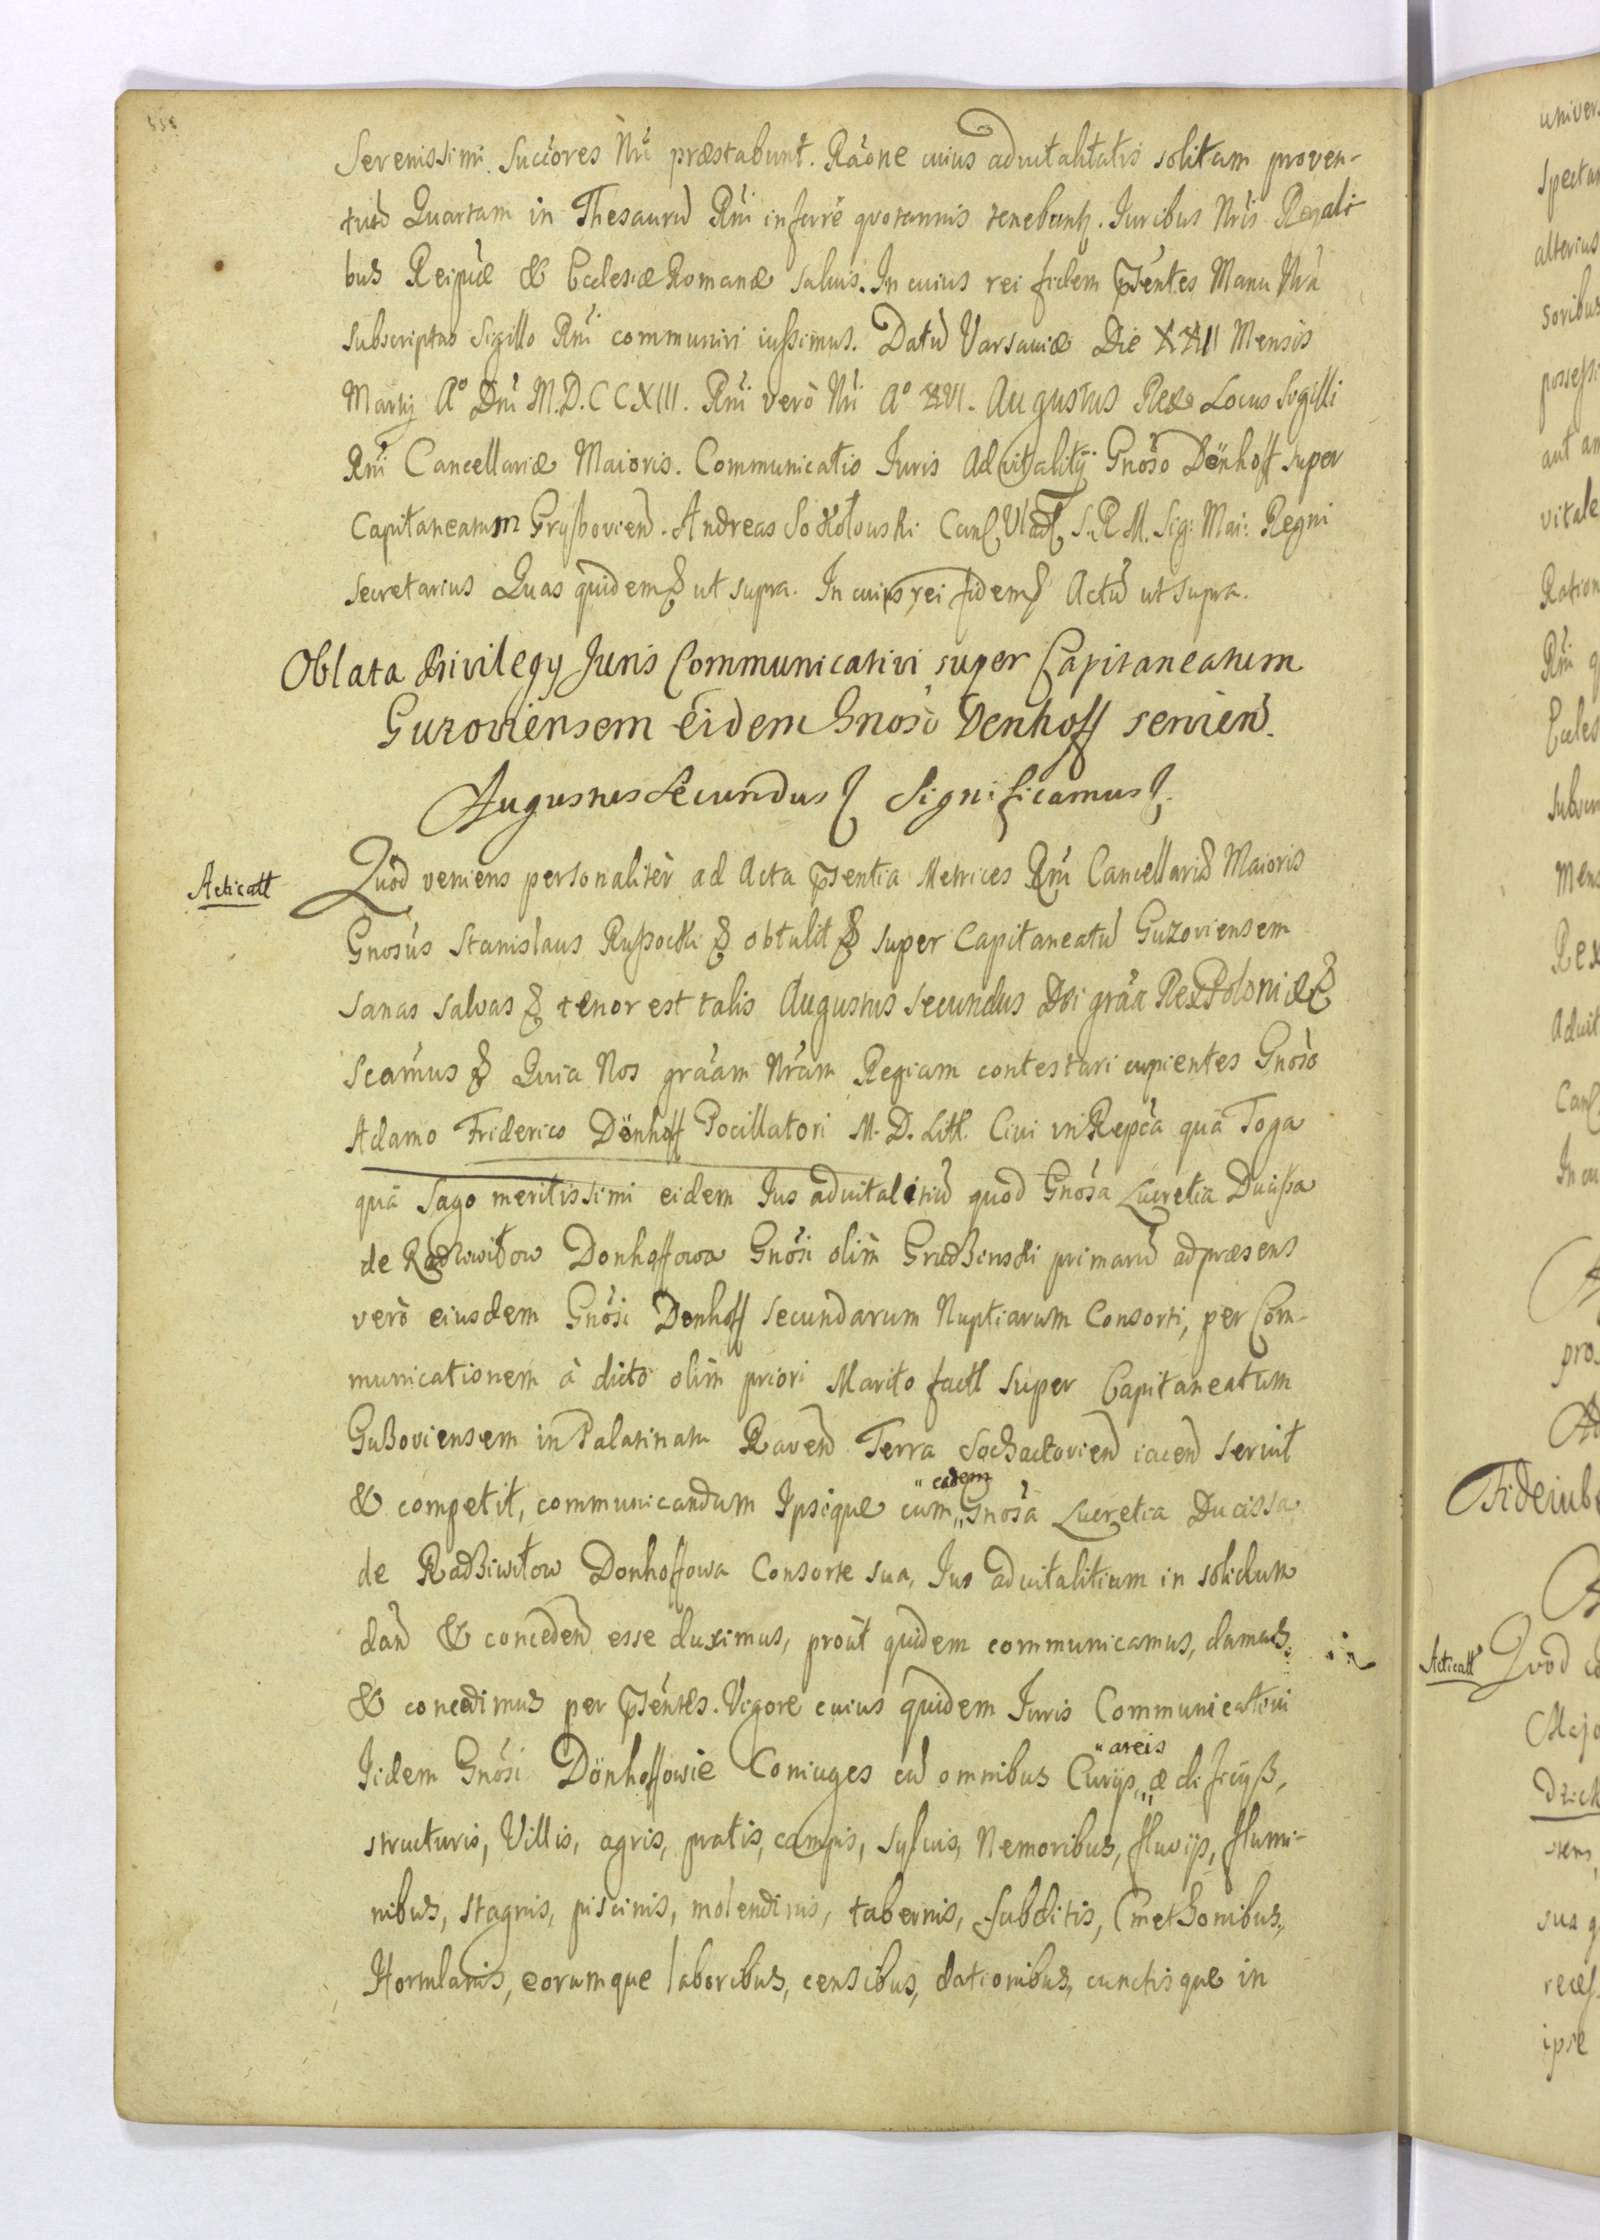 Serenissimi Succ̃ores Nr̃i præstabunt. Rãone cuius aduitalitatis solitam proven-
tuũ Quartam in Thesaurũ Rñi inferrẽ quotannis tenebunt͛. Iuribus Nr̃is Regali-
bus Reipũæ & Ecclesiæ Romanæ saluis. In cuius rei fidem Pñtes Manu Nr̃a
subscriptas Sigillo Rñi communiri iussimus. Datũ Varsauiæ Die XXII Mensis
Martij Aº Dñi M.D.CCXIII. Rñi verò Nr̃i Aº XVI. Augustus Rex Locus Sigilli
Rñi Cancellariæ Maioris. Communicatio Iuris Aduitalitij Gnõso Dönhoff super
Capitaneatum Gryßovien̄. Andreas Sokołowski S.R.M. Sig: Mai: Regni
Secretarius Quas quidem & ut supra. In cuius rei fidem & Actũ ut supra.
Oblata Privilegy Juris Communicativi super Capitaneatum
Guzoviensem eidem Gnõso Denhoff servien̄.
Augustus Secundus & Significamus &.
Acticatt
Quod veniens personalitèr ad Acta Pñtia Metrices Rñi Cancellariæ Maioris
Gnosũs Stanislaus Rußocki & obtulit & super Capitaneatũ Guzoviensem
sanas salvas & tenor est talis Augustus Secundus Dei grãa Rex Poloniæ &
Scãmus & Quia Nos grãam Nr̃am Regiam contestari cupientes Gnõso
Adamo Friderico Dönhoff Pocillatori M. D. Litt. Ciui in Repc̃a quà Toga
quà Sago meritissimi eidem Ius aduitalitiũ quod Gnõsa Lucretia Ducissa
de Radziwiłow Donhoffowa Gnõsi olim Grudßinski primarũ ad præsens
verò eiusdem Gnõsi Donhoff secundarum Nuptiarum Consorti, per Com-
municationem à dicto olìm priori Marito factt super Capitaneatum
Gußoviensem in Palatinatu Raven̄ Terra Sochaczovien̄ iacen̄ seruit
& competit, communicandum Ipsique cum "eadem" Gnõsa Lucretia Ducissa
de Radßiwiłow Donhoffowa Consorte sua, Ius aduitalitium in solidum
dan̄ & conceden̄ esse duximus, proùt quidem communicamus, damus,
& concedimus per Pñtes. Vigore cuius quidem Iuris Communicativi
Iidem Gnõsi Dönhoffowie Coniuges cũ omnibus Curijs, "areis" ædificijß,
structuris, Villis, agris, pratis, campis, syluis, Nemoribus, fluvijs, flumi-
nibus, stagnis, piscinis, molendinis, tabernis, subditis, Cmethonibus,
Hortulanis, eorumque laboribus, censibus, dationibus, cunctisque in